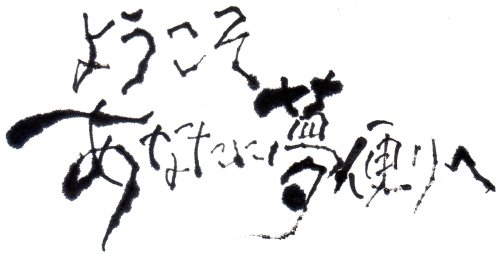 ようこそ
あなたに夢便りへ